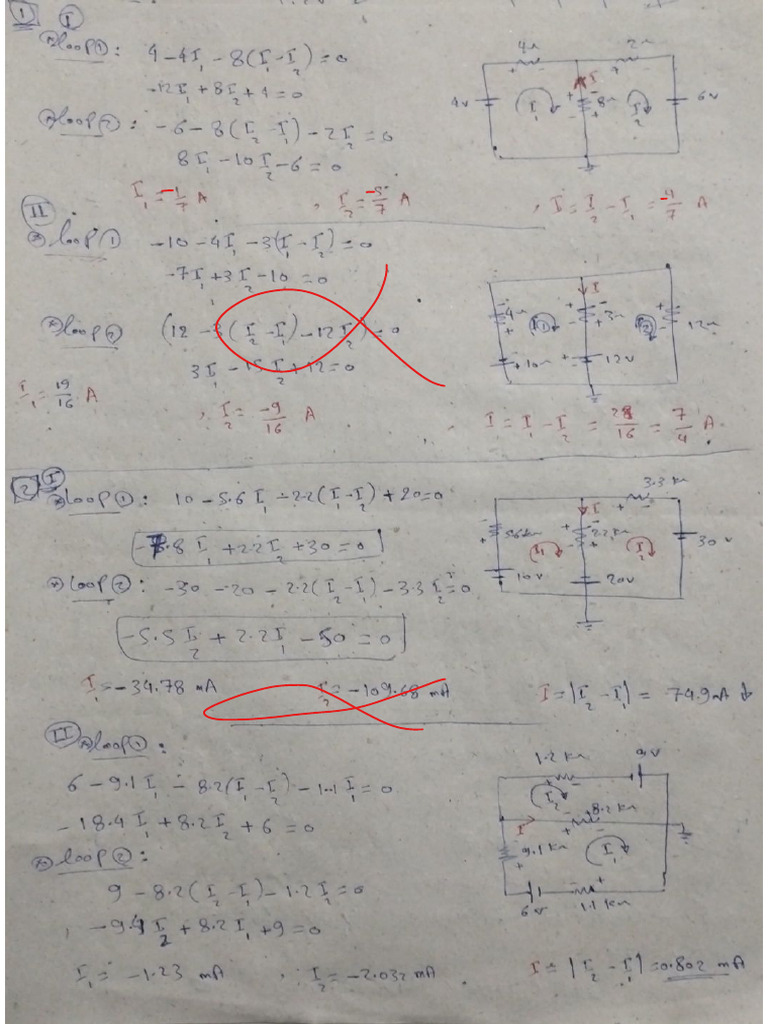 1 I
* loop①: 4 - 4I₁ - 8(I₁ - I₂) = 0
-12I₁ + 8I₂ + 4 = 0
* loop②: -6 - 8(I₂ - I₁) - 2I₂ = 0
8I₁ - 10I₂ - 6 = 0
I₁ = -1/7 A , I₂ = -5/7 A , I = I₂ - I₁ = -4/7 A
4Ω 2Ω
4v I₁ I 8Ω I₂ 6v
II
* loop① -10 - 4I₁ - 3(I₁ - I₂) = 0
-7I₁ + 3I₂ - 10 = 0
* loop② (12 - 3(I₂ - I₁) - 12I₂) = 0
3I₁ - 15I₂ + 12 = 0
I₁ = 19/16 A , I₂ = -9/16 A , I = I₁ - I₂ = 28/16 = 7/4 A
I
4Ω I₁ 3Ω I₂ 12Ω
12v
2 I
* loop①: 10 - 5.6I₁ - 2.2(I₁ - I₂) + 20 = 0
-7.8I₁ + 2.2I₂ + 30 = 0
* loop②: -30 - 20 - 2.2(I₂ - I₁) - 3.3I₂ = 0
-5.5I₂ + 2.2I₁ - 50 = 0
I₁ = -34.78 mA I₂ = -109.68 mA I = |I₂ - I₁| = 74.9 mA ↓
3.3 kΩ
I
5.6kΩ I₁ 2.2kΩ I₂ 30v
10v 20v
II * loop①:
6 - 9.1I₁ - 8.2(I₁ - I₂) - 1.1I₁ = 0
-18.4I₁ + 8.2I₂ + 6 = 0
* loop②:
9 - 8.2(I₂ - I₁) - 1.2I₂ = 0
, -9.4I₂ + 8.2I₁ + 9 = 0
I₁ = -1.23 mA , I₂ = -2.032 mA I = |I₂ - I₁| = 0.802 mA
1.2 kΩ 9v
I₂ 8.2 kΩ
I
9.1 kΩ I₁
6v 1.1 kΩ